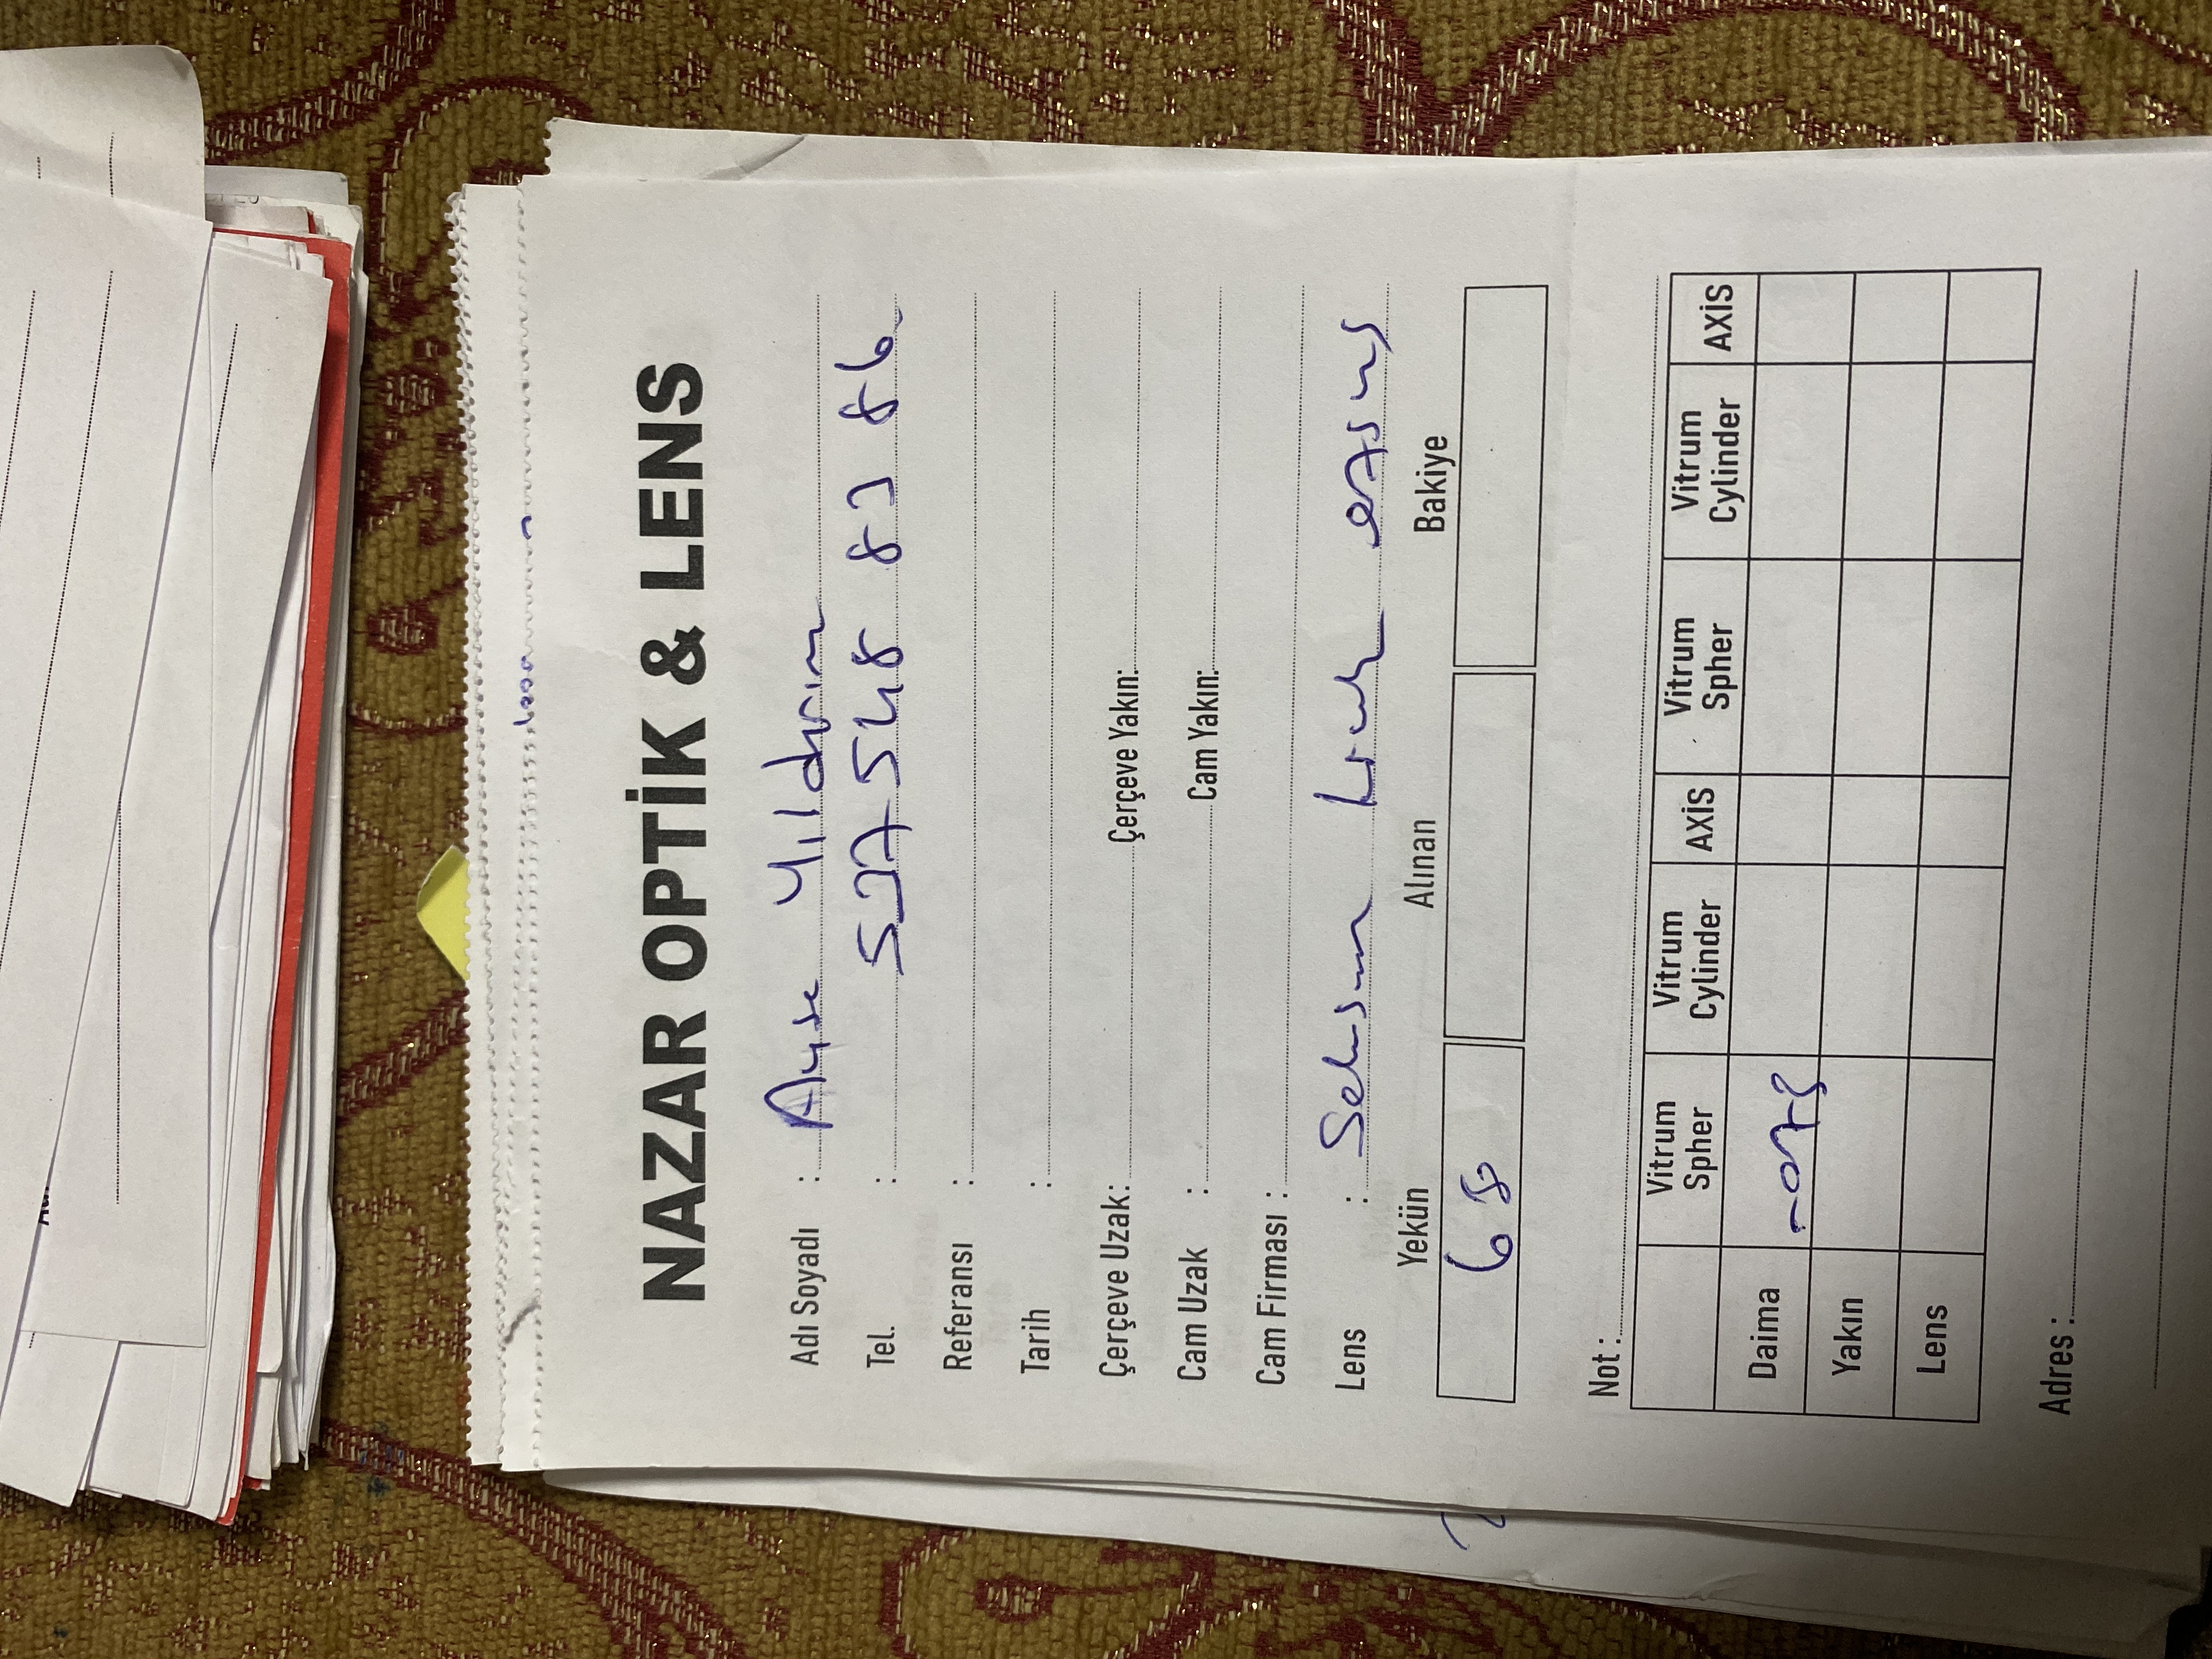 NAZAR OPTİK & LENS
Adı Soyadı : Ayse Yıldırım
Tel. : 537 548 83 86
Referansı :
Tarih :
Çerçeve Uzak: Çerçeve Yakın:
Cam Uzak : Cam Yakın:
Cam Firması :
Lens :
Yekün Alınan Bakiye
68
Not :
Vitrum Spher Vitrum Cylinder AXİS Vitrum Spher Vitrum Cylinder AXİS
Daima -075
Yakın
Lens
Adres :